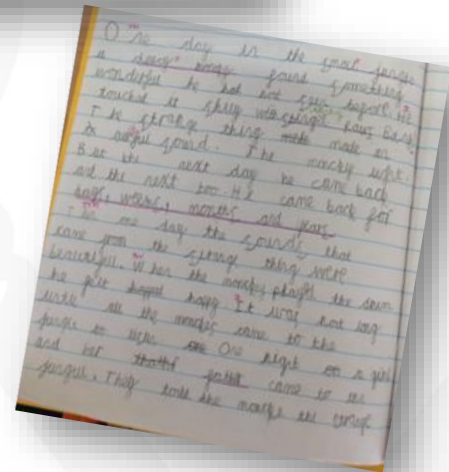 One day in the great jungle
a monkey found something
wonderful he had not seen before. He
touched it
The strange thing made an
awful sound. The monkey left.
But the next day he came back
and the next too. He came back for
days, weeks, months and years
one day the sounds that
came from the strange thing were
beautiful. When the monkey played the drum
he felt happy It was not long
until all the monkeys came to the
jungle to listen One night a girl
and her father came to the
jungle. They took the monkey the